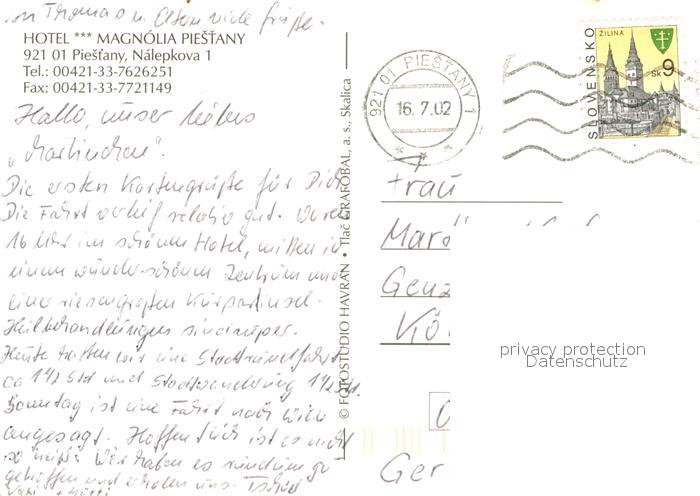 von Thomas u. viele Grüße.
HOTEL *** MAGNÓLIA PIEŠŤANY
921 01 Piešťany, Nálepkova 1
Tel.: 00421-33-7626251
Fax: 00421-33-7721149
Hallo, unser liebes
„Martinchen“.
Die ersten Kartengrüße für Dich
Die Fahrt verlief relativ gut. Waren
16 Uhr im schönen Hotel, mitten in
einem wunderschönen Zentrum und
einer riesengroßen Kurparkinsel.
Heilbehandlungen sind super.
Heute hatten wir eine Stadtrundfahrt
ca 1½ Std und Stadtwanderung 1½ Std.
Sonntag ist eine Fahrt nach Wien
angesagt. Hoffentlich ist es nicht
so heiß. Wir haben es rundum gut
getroffen und erholen uns. Tschüß
© FOTOSTUDIO HAVRAN • Tlač GRAFOBAL, a. s., Skalica
921 01 PIEŠŤANY 1
16.7.02
SLOVENSKO
ŽILINA
9
SK
Frau
Mar
Genz
Kö
Ger
privacy protection
Datenschutz